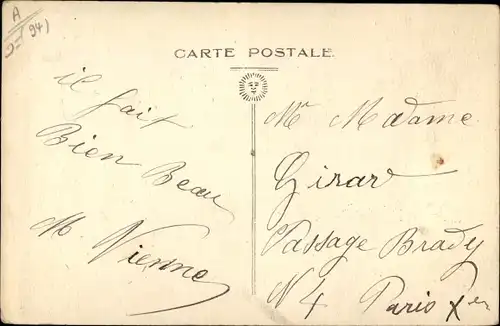 A
94)
CARTE POSTALE
il fait
Bien Beau
M. Vienne
Mr Madame
Girard
Passage Brady
N 4 Paris Xer